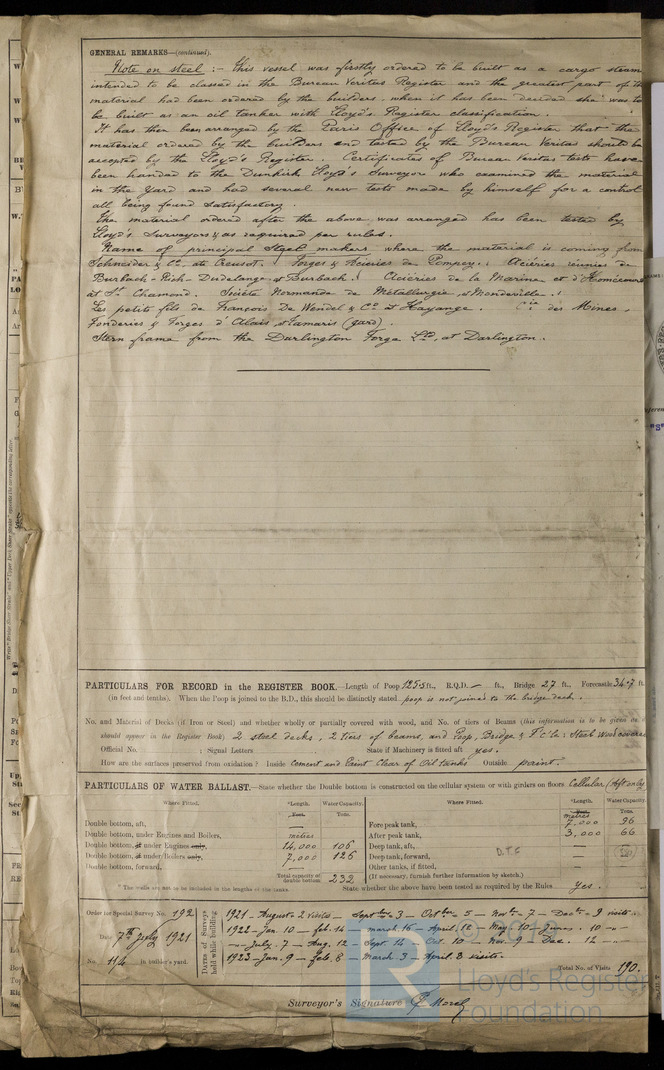 GENERAL REMARKS—(continued).
Note on steel :- this vessel was firstly ordered to be built as a cargo steam
intended to be classed in the Bureau Veritas Register and the greatest part of the
material had been ordered by the builders when it has been decided she was to
be built as an oil tanker with Lloyd's Register classification.
It has then been arranged by the Paris Office of Lloyd's Register that the
material ordered by the builders and tested by the Bureau Veritas should be
accepted by the Lloyd's Register. Certificates of Bureau Veritas tests have
been handed to the Dunkirk Lloyd's Surveyors who examined the material
in the yard and had several new tests made by himself for a control
all being found satisfactory.
The material ordered after the above was arranged has been tested by
Lloyd's Surveyors as required per rules.
Name of principal Steel makers where the material is coming from
Schneider & Co at Creusot. Forges & Acieries de Pompey. Aciéries réunies de
Burbach-Eich-Dudelange at Burbach. Aciéries de la Marine et d'Homécourt
at St Chamond. Société Normande de Métallurgie, at Mondeville.
Les petits fils de François De Wendel & Co at Hayange. Cie des Mines,
Fonderies & Forges d'Alais at Tamaris (gard).
Stern frame from the Darlington Forge Ltd, at Darlington.
PARTICULARS FOR RECORD in the REGISTER BOOK.—Length of Poop 125.5 ft., R.Q.D. — ft., Bridge 27 ft., Forecastle 34.7 ft.
(in feet and tenths). When the Poop is joined to the B.D., this should be distinctly stated poop is not joined to the bridge deck.
No. and Material of Decks (if Iron or Steel) and whether wholly or partially covered with wood, and No. of tiers of Beams (this information is to be given as it
should appear in the Register Book) 2 steel decks, 2 tiers of beams, and Poop, Bridge & F'c'le: Steel Wood covered
Official No. ; Signal Letters State if Machinery is fitted aft yes.
How are the surfaces preserved from oxidation? Inside Cement and Paint Clear of Oil tanks Outside paint.
PARTICULARS OF WATER BALLAST.—State whether the Double bottom is constructed on the cellular system or with girders on floors Cellular (Aft only)
Where Fitted. *Length. Water Capacity. Where Fitted. *Length. Water Capacity.
Feet. Tons. Feet. Tons.
Double bottom, aft, Fore peak tank, metres 7,000 96
Double bottom, under Engines and Boilers, metres After peak tank, 3,000 66
Double bottom, if under Engines only, 14,000 106 Deep tank, aft, —
Double bottom, if under Boilers only, 7,000 126 Deep tank, forward, D.T.6 —
Double bottom, forward, Other tanks, if fitted, —
Total capacity of double bottom 232 (If necessary, furnish further information by sketch.)
* The wells are not to be included in the lengths of the tanks. State whether the above have been tested as required by the Rules yes.
Order for Special Survey No. 192
Date 7th July 1921
No. 114 in builder's yard.
Dates of Surveys held while building
1921 - August - 2 visits - Septber - 3 - Octber - 5 - Novber - 7 - Decber - 9 visits.
1922 - Jan. 10 - feb. 14 march. 16 - April. 12 May. 10 - June. 10 - „ -
- „ - July. 7 - Aug. 12 - Sept. 14 Oct. 10 - Nov. 9 - Dec. 12 - „ -
1923 - Jan. 9 - feb. 8 - March. 3 - April. 3 visits.
Total No. of Visits 190.
Surveyor's Signature
Lloyd's Register
Foundation